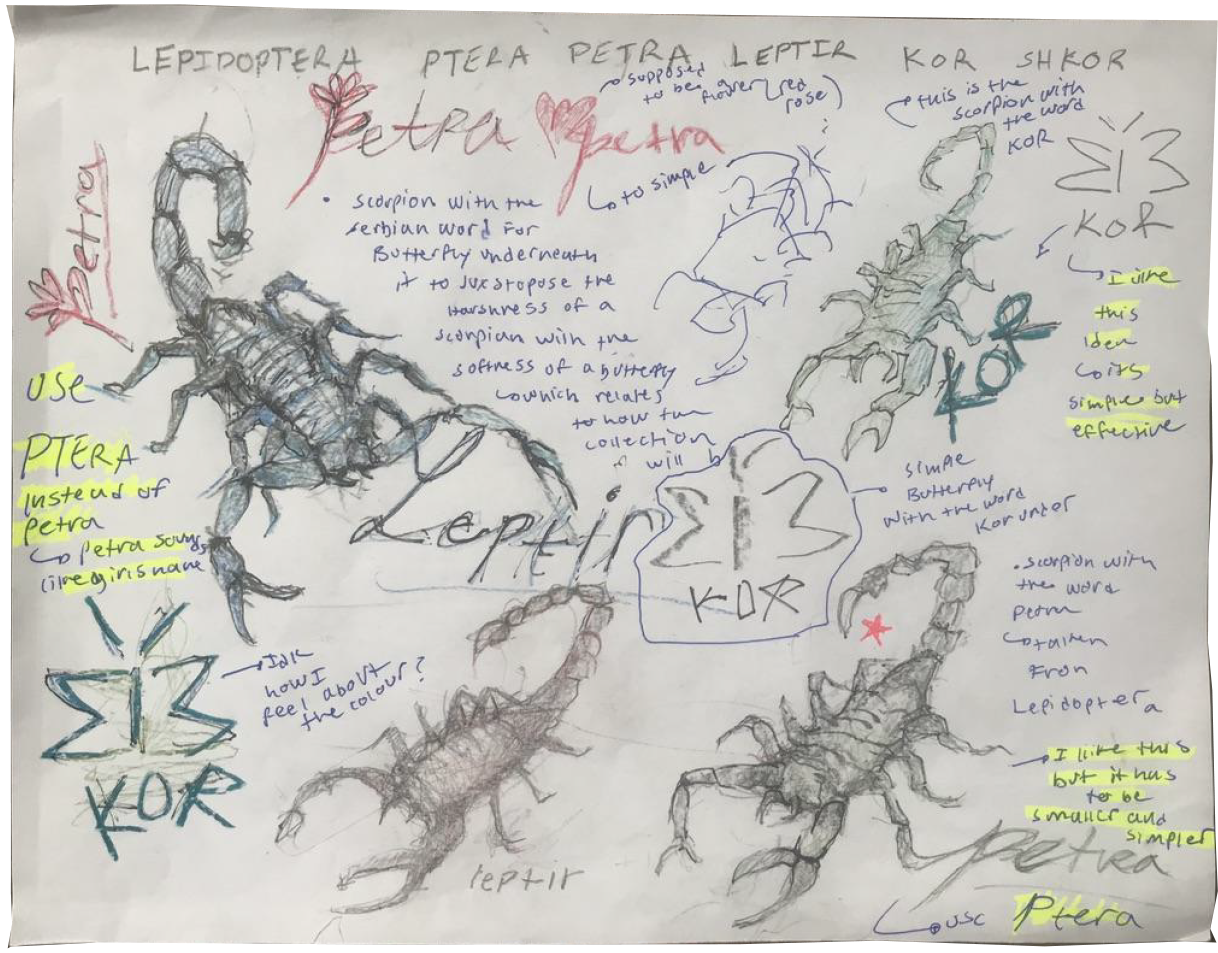 LEPIDOPTERA PTERA PETRA LEPTIR KOR SHKOR
petra
petra petra
supposed
to be a
flower (red
rose)
to simple
• scorpion with the
serbian word for
Butterfly underneath
it to juxstopose the
Harshness of a
scorpian with the
softness of a butterfly
which relates
to how the
collection
will b
this is the
scorpion with
the word
KOR
KOR
KOR
I like
this
idea
its
simple but
effective
USE
PTERA
instead of
petra
petra sounds
like a girls name
Leptir
KOR
simple
Butterfly
with the word
Kor under
• scorpion with
the word
petra
taken
from
Lepidoptera
KOR
Idk
how I
feel about
the colour?
leptir
I like this
but it has
to be
smaller and
simpler
petra
use Ptera